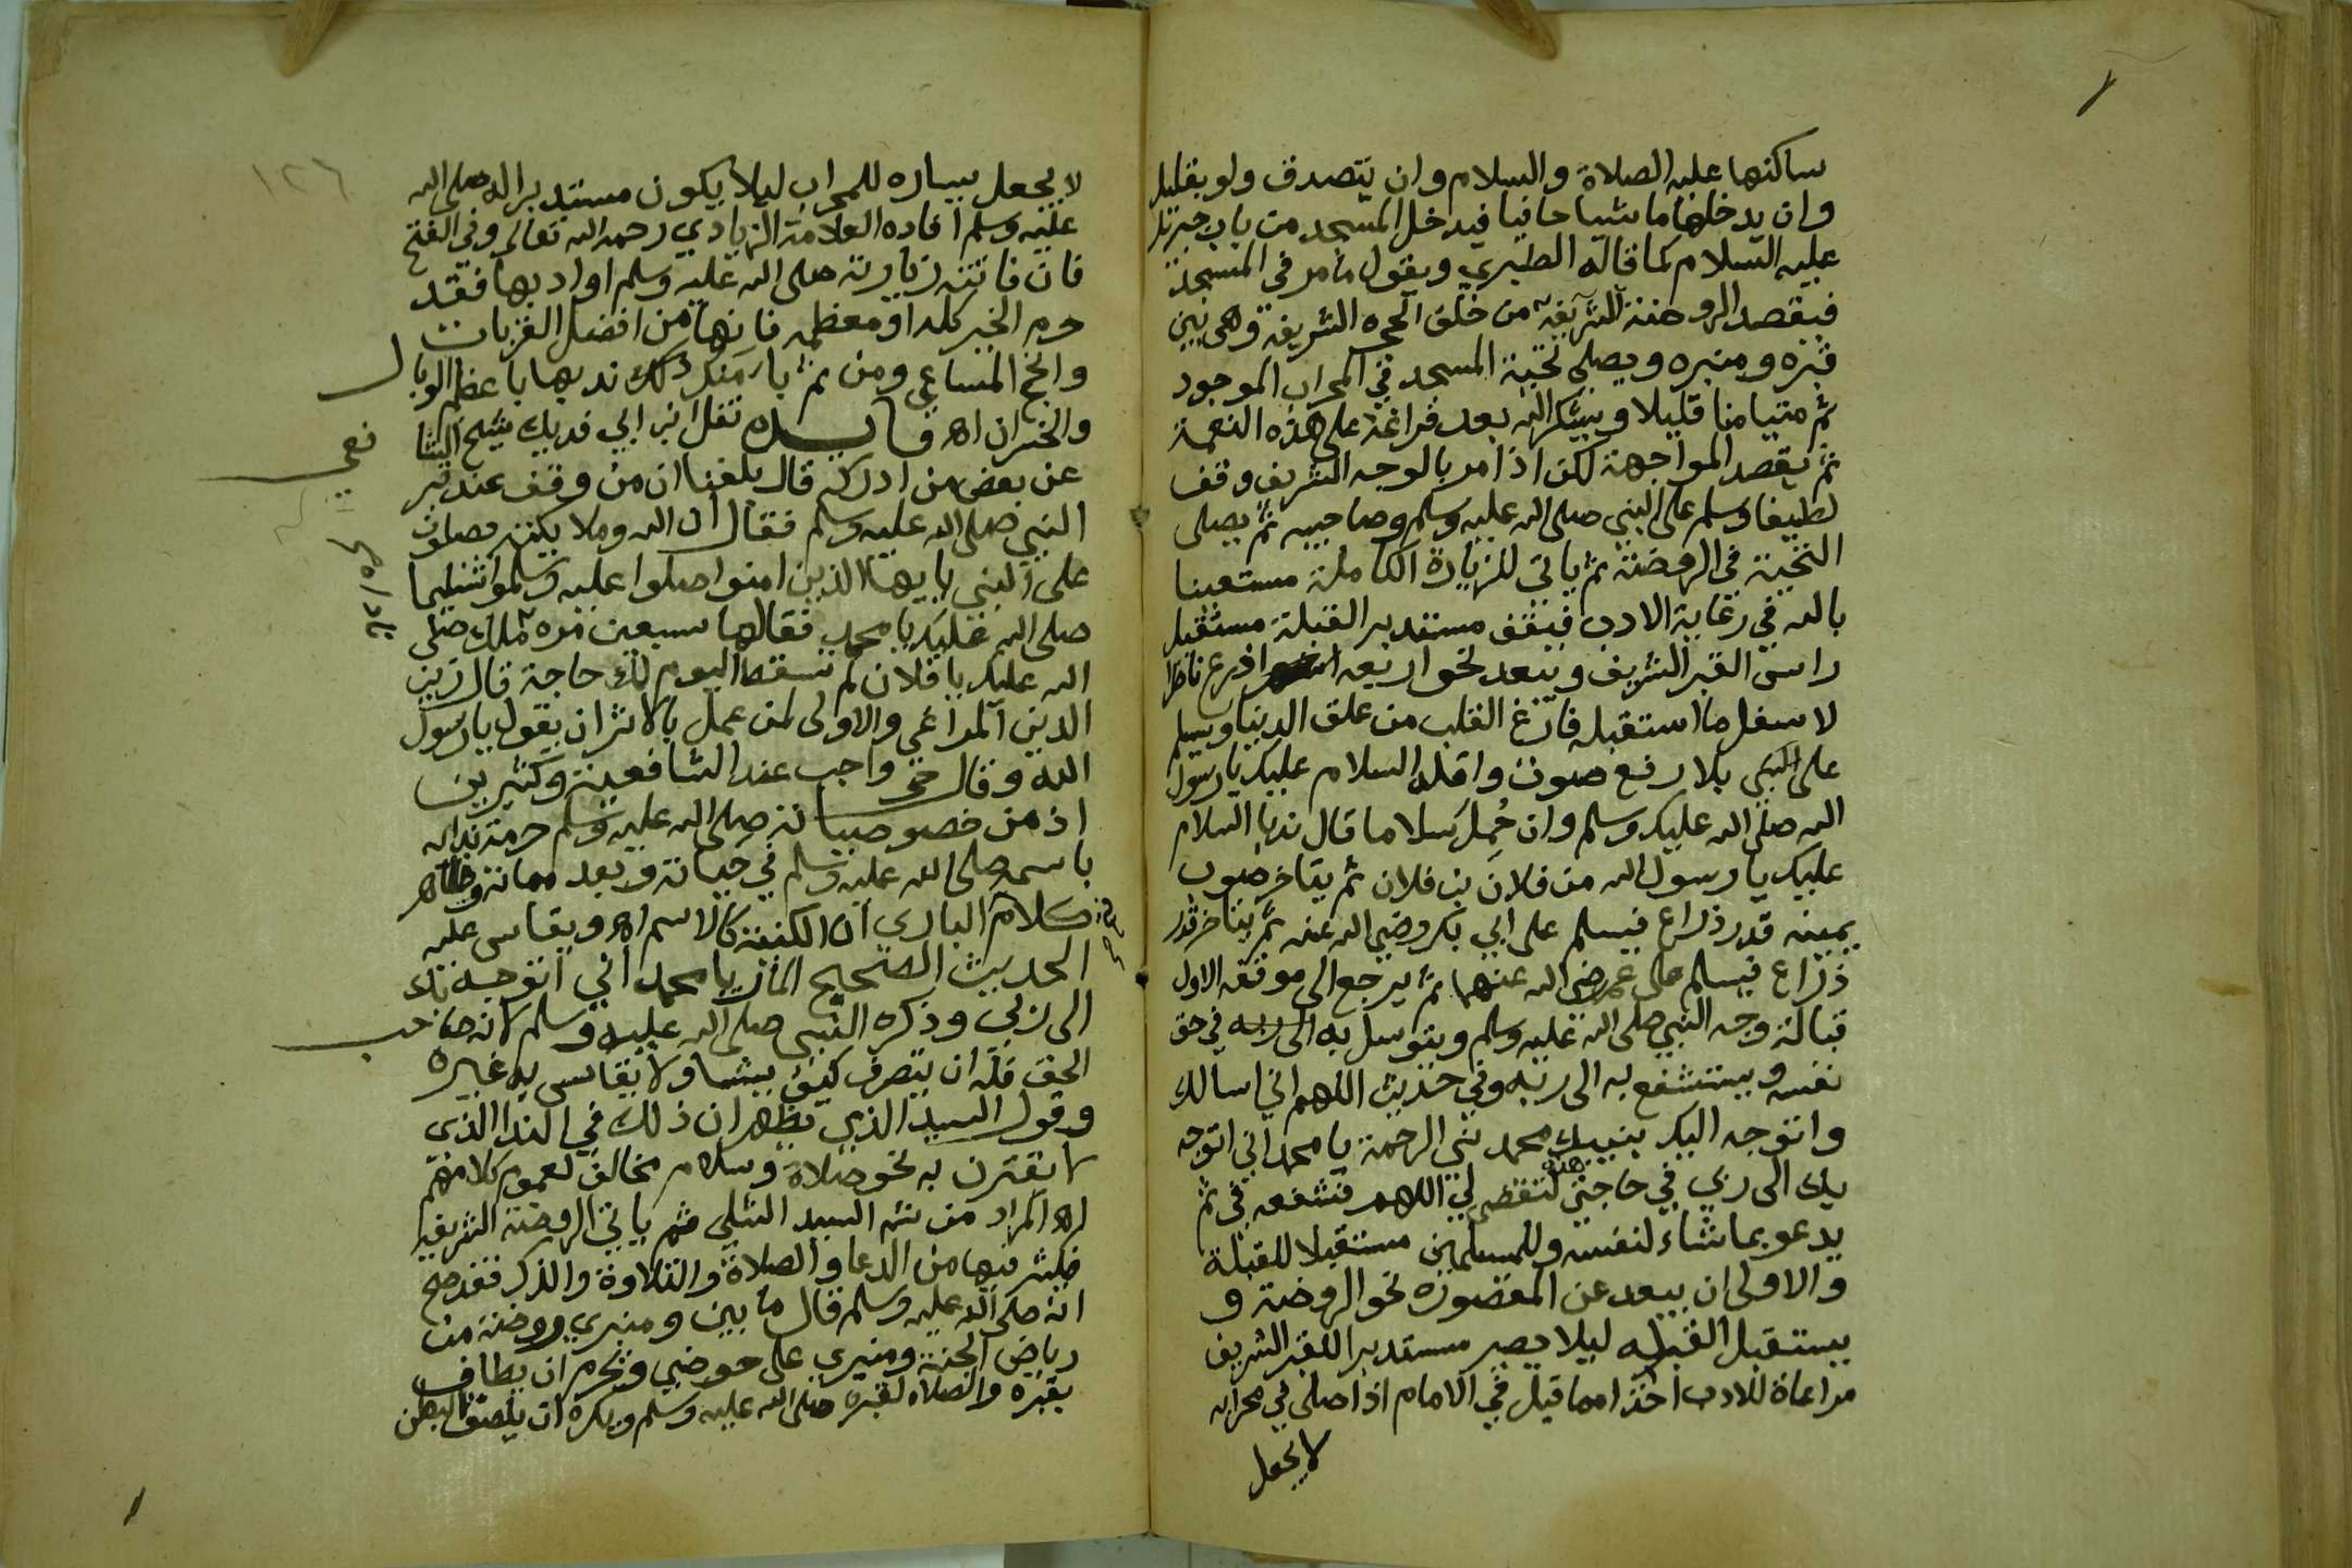 ساكنها عليه الصلاة والسلام وان يتصدق ولو بقليل
وان يدخلها ماشيا حافيا فيدخل المسجد من باب جبريل
عليه السلام كما قاله الطبري ويقول مامر في المسجد
فيقصد الروضة الشريفة من خلف الحجره الشريفة وهى بين
قبره ومنبره ويصلي تحية المسجد في المحراب الموجود
ثم متيامنا قليلا ويشكر الله بعد فراغه على هذه النعمة
ثم يقصد المواجهة لكن اذا مر بالوجه الشريف وقف
لطيفا وسلم على النبي صلى الله عليه وسلم وصاحبيه ثم يصلى
التحية في الروضة ثم ياتي للزيارة الكاملة مستعينا
بالله في رعاية الادب فيقف مستدبر القبلة مستقبل
راس القبر الشريف ويبعد نحو اربعه اذرع ناظرا
لاسفل ما استقبله فارغ القلب من علق الدنيا ويسلم
على النبى بلا رفع صوت واقله السلام عليك يا رسول
الله صلى الله عليك وسلم وان حُمِلَ سلاما قال ندبا السلام
عليك يا رسول الله من فلان بن فلان ثم يتاخر صوب
يمينه قدر ذراع فيسلم على ابي بكر رضي الله عنه ثم يتاخر قدر
ذراع فيسلم على عمر رضي الله عنهما ثم يرجع الى موقفه الاول
قبالة وجه النبي صلى الله عليه وسلم ويتوسل به الى ربه في حق
نفسه ويستشفع به الى ربه وفي حديث اللهم اني اسالك
واتوجه اليك بنبيك محمد نبي الرحمة يا محمد اني اتوجه
بك الى ربي في حاجتى هذه لتقضى لي اللهم فشفعه في ثم
يدعو بما شاء لنفسه وللمسلمين مستقبلا للقبلة
والاولى ان يبعد عن المقصورة نحو الروضة و
يستقبل القبلة ليلا يصير مستدبرا للقبر الشريف
مراعاة للادب اخذا مما قيل في الامام اذا صلى في محرابه
لا يجعل
١٢٦
لا يجعل يساره للمحراب ليلا يكون مستدبرا له صلى الله
عليه وسلم افاده العلامة الزيادي رحمه الله تعالى وفي الفتح
فان فاتته زيارته صلى الله عليه وسلم او ادبها فقد
حرم الخير كله او معظمه فانها من افضل القربات
وانجح المساعي ومن ثم باء منكر ذلك ندبها باعظم الوبال
والخسران اه فايده نقل ابن ابي فديك شيخ الشا
فعي
عن بعض من ادركه قال بلغنا ان من وقف عند قبر
النبي صلى الله عليه وسلم فقال ان الله وملايكته يصلون
على النبي يا ايها الذين امنوا صلوا عليه وسلموا تسليما
صلى الله عليك يا محمد فقالها سبعين مره ملك صلى
الله عليك يا فلان لم تسقط اليوم لك حاجة قال زين
الدين المراغي والاولى لمن عمل بالاثر ان يقول يا رسول
الله وقال حج واجب عند الشافعية وكثيرين
اذ من خصوصياته صلى الله عليه وسلم حرمة ندائه
باسمه صلى الله عليه وسلم في حياته وبعد مماته وظاهر
كلام البارى ان الكنية كالاسم اه ويقاس عليه
الحديث الصحيح المار يا محمد اني اتوجه بك
الى ربي وذكره النبى صلى الله عليه وسلم لانه صاحب
الحق فله ان يتصرف كيف يشا ولا يقاس به غيره
وقول السيد الذي يظهر ان ذلك في الندا الذى
لا يقترن به نحو صلاة وسلام مخالف لعموم كلامهم
اه المراد من السيد الشلي ثم ياتي الروضة الشريفة
فيكثر فيها من الدعا والصلاة والتلاوة والذكر فقد صح
انه صلى الله عليه وسلم قال ما بين ومنبري وروضة من
رياض الجنة ومنبري على حوضي ويحرم ان يطاف
بقبره والصلاة لقبره صلى الله عليه وسلم ويكره ان يلصق البطن